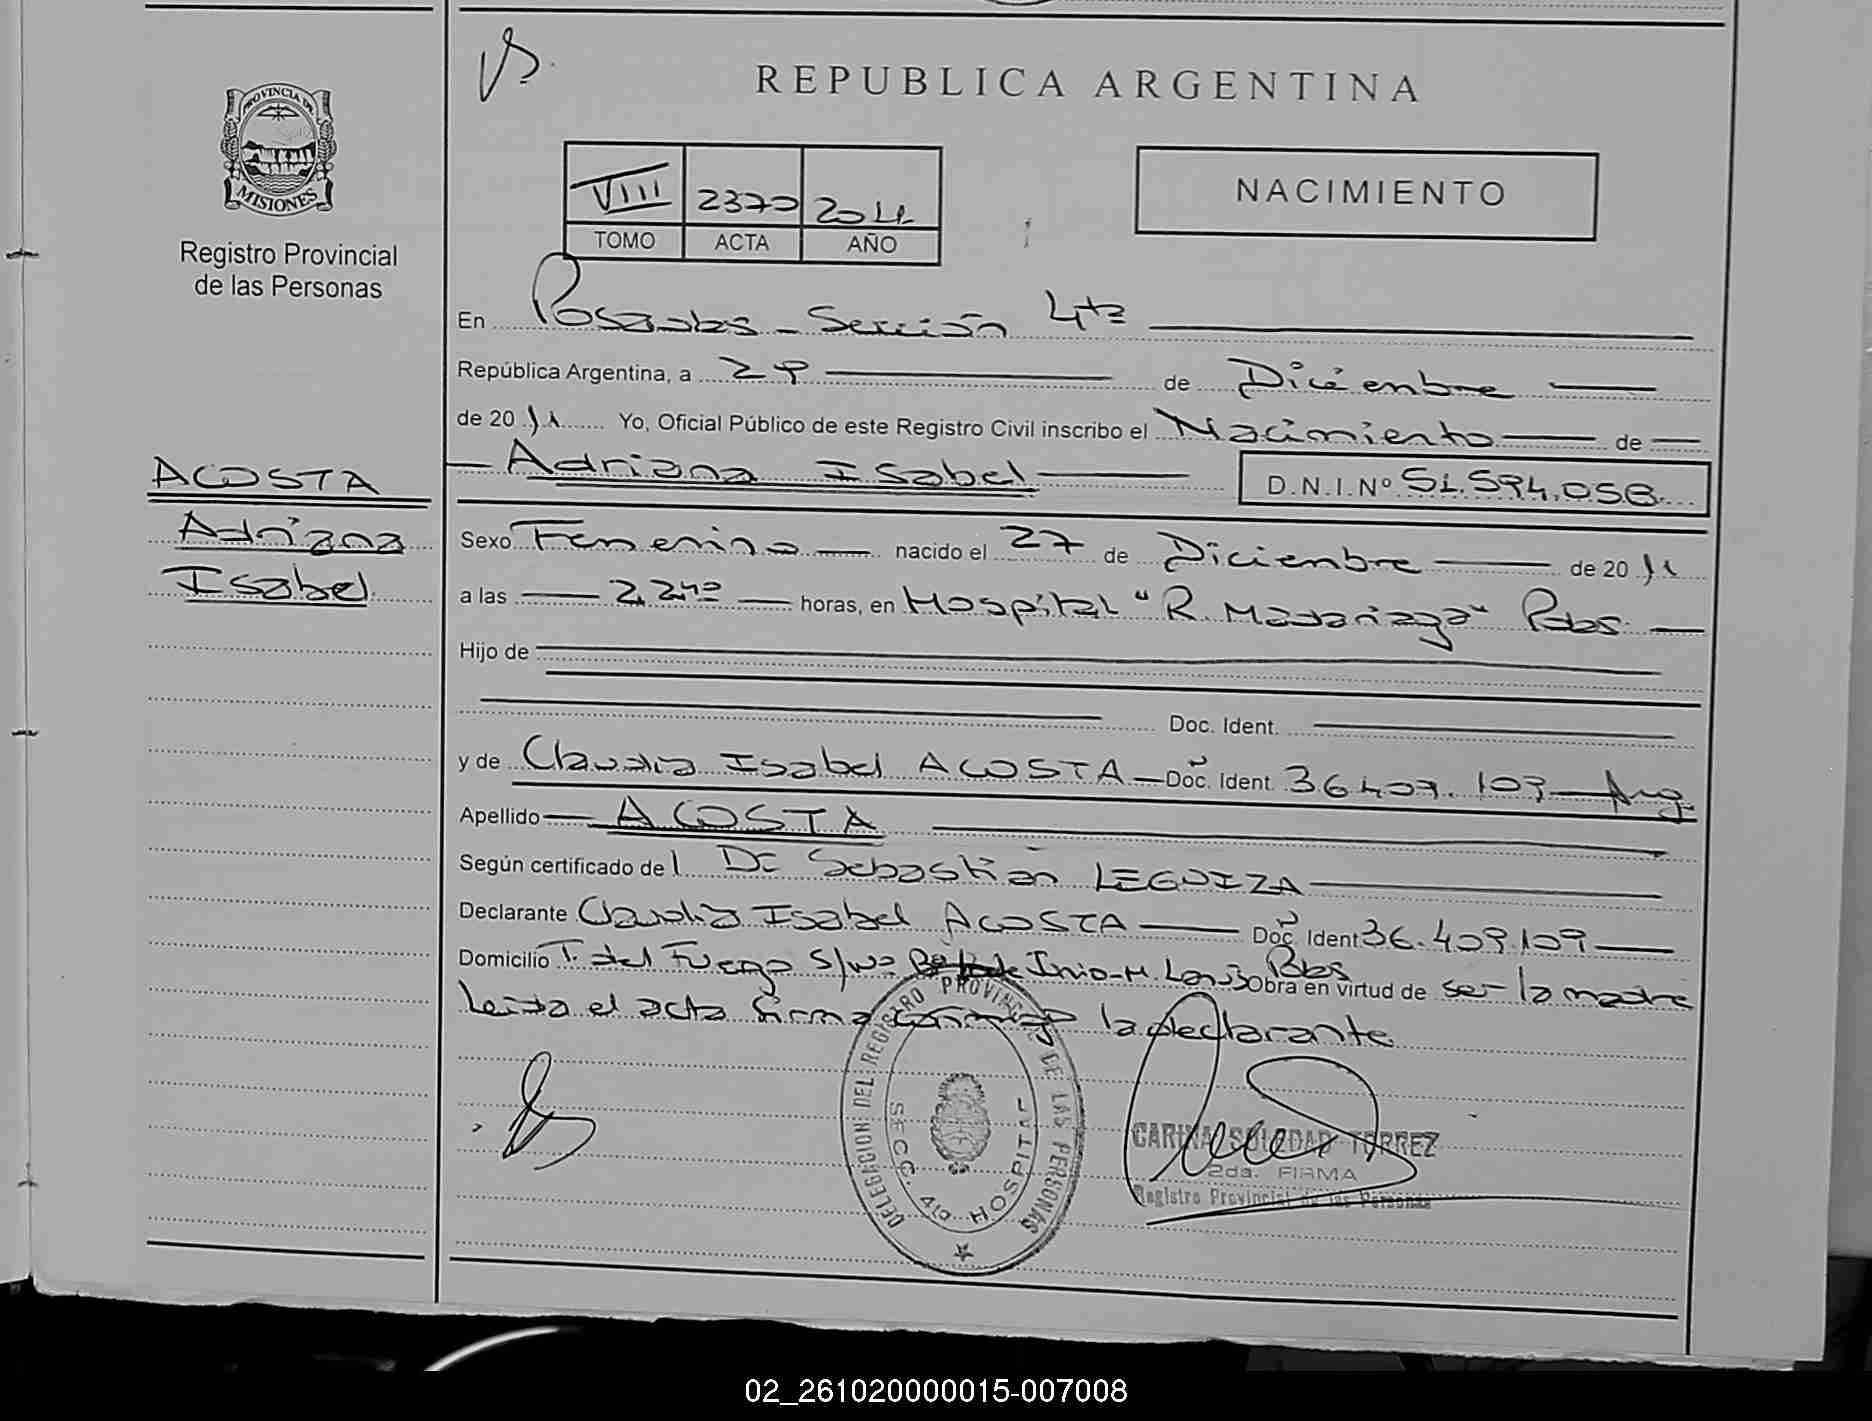 REPUBLICA ARGENTINA
PROVINCIA DE
MISIONES
Registro Provincial
de las Personas
VIII 2370 2011
TOMO ACTA AÑO
NACIMIENTO
En Posadas - Sección 4ta
República Argentina, a 29 de Diciembre
de 20 11 Yo, Oficial Público de este Registro Civil inscribo el Nacimiento de
Adriana Isabel D.N.I.Nº 51.594.058
ACOSTA
Adriana
Isabel
Sexo Femenino nacido el 27 de Diciembre de 20 11
a las 2,240 horas, en Hospital "R. Madariaga" Pdas.
Hijo de
Doc. Ident.
y de Claudia Isabel ACOSTA Doc. Ident. 36.409.109 Arg.
Apellido ACOSTA
Según certificado del Dr Sebastian LEGUIZA
Declarante Claudia Isabel ACOSTA Doc. Ident. 36.409.109
Domicilio T. del Fuego S/Nº Pdas Obra en virtud de ser la madre
Leída el acta firma conmigo la declarante
DELEGACION DEL REGISTRO PROVINCIAL DE LAS PERSONAS
SECC. 4ta HOSPITAL
CARINA SOLEDAD TORREZ
2da. FIRMA
Registro Provincial de las Personas
02_261020000015-007008